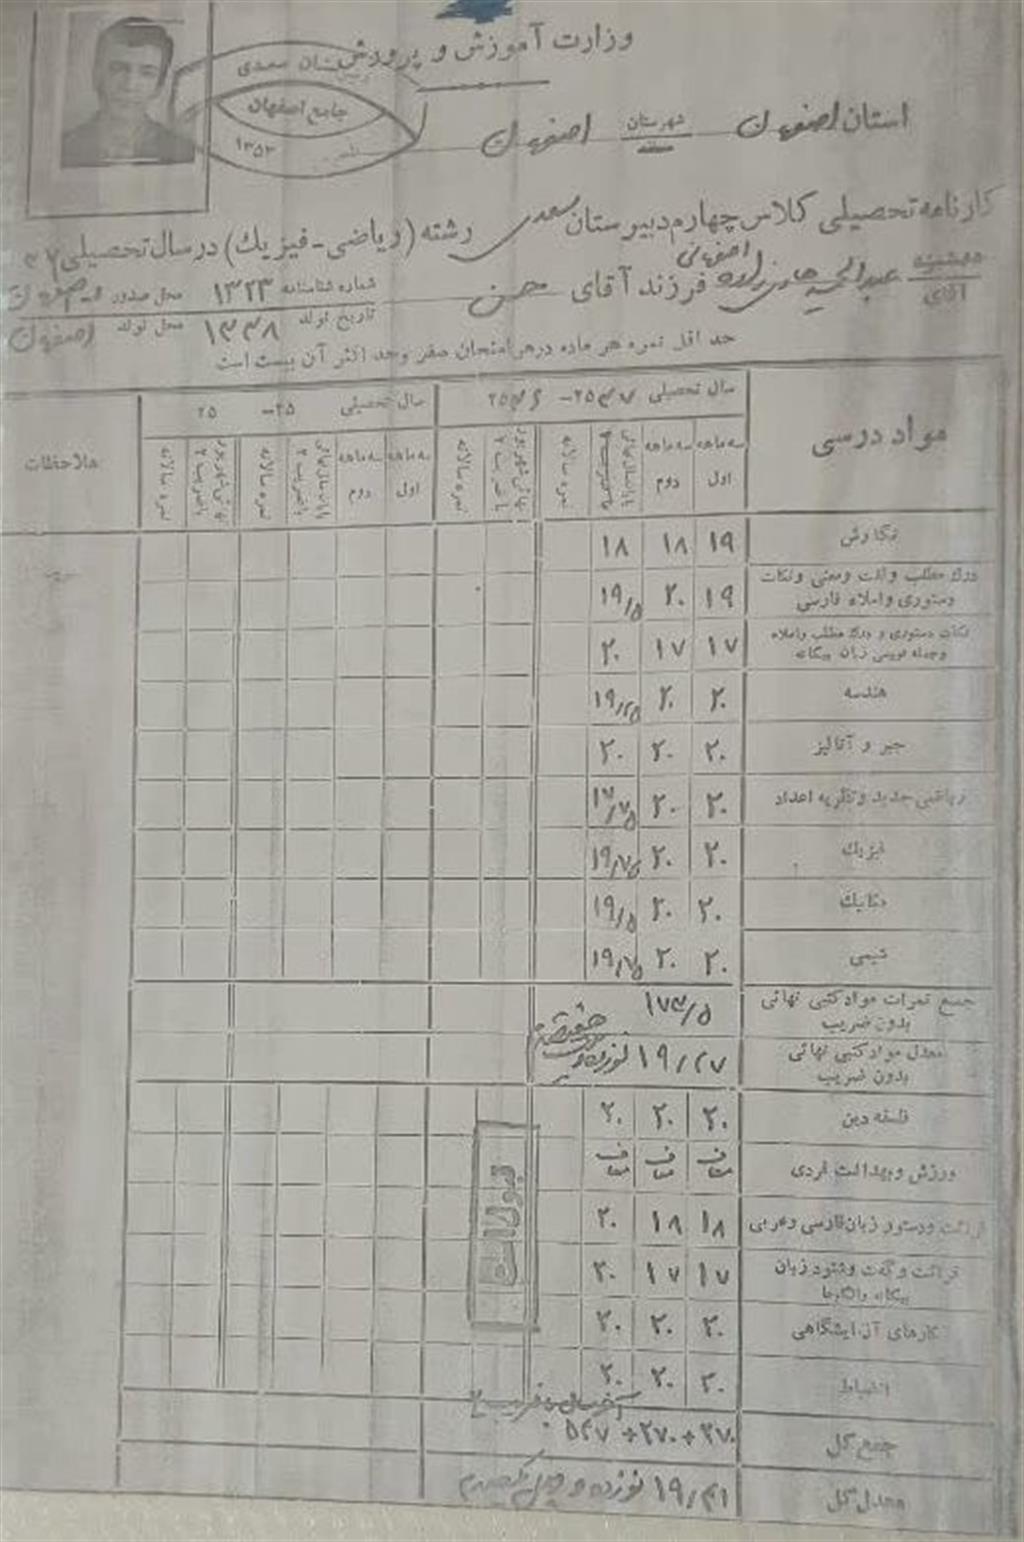 وزارت آموزش و پرورش
دبیرستان سعدی
جامع اصفهان
۱۳۵۳
استان اصفهان شهرستان اصفهان
کارنامه تحصیلی کلاس چهارم دبیرستان سعدی رشته (ریاضی-فیزیک) در سال تحصیلی ۳۶
دوشیزه
آقای عبدالحمید اصفهانی فرزند آقای حسن
شماره شناسنامه ۱۳۲۳ محل صدور
تاریخ تولد ۱۳۳۸ محل تولد اصفهان
حداقل نمره هر ماده در هر امتحان صفر و حداکثر آن بیست است
مواد درسی سال تحصیلی ۲۵۳۷-۲۵۳۶ سال تحصیلی ۲۵-۲۵ ملاحظات
سه ماهه اول سه ماهه دوم نمره سالانه نمره سالانه سه ماهه اول سه ماهه دوم نمره سالانه نمره سالانه
نگارش ۱۹ ۱۸ ۱۸
درک مطلب و لغت و معنی و نکات دستوری و املاء فارسی ۱۹ ۲۰ ۱۹/۵
نکات دستوری و درک مطلب و املاء و جمله نویسی زبان بیگانه ۱۷ ۱۷ ۲۰
هندسه ۲۰ ۲۰ ۱۹/۲۵
جبر و آنالیز ۲۰ ۲۰ ۲۰
ریاضی جدید و نظریه اعداد ۲۰ ۲۰ ۱۷/۷۵
فیزیک ۲۰ ۲۰ ۱۹/۷۵
مکانیک ۲۰ ۲۰ ۱۹/۵
شیمی ۲۰ ۲۰ ۱۹/۷۵
جمع نمرات مواد کتبی نهائی بدون ضریب ۱۷۳/۵
معدل مواد کتبی نهائی بدون ضریب ۱۹/۲۷ نوزده و
فلسفه دین ۲۰ ۲۰ ۲۰
ورزش و بهداشت فردی معاف معاف معاف
قرائت و دستور زبان فارسی و عربی ۱۸ ۱۸ ۲۰
قرائت و گفت و شنود زبان بیگانه ۱۷ ۱۷ ۲۰
کارهای آزمایشگاهی ۲۰ ۲۰ ۲۰
انضباط ۲۰ ۲۰ ۲۰
قبول است
جمع کل ۲۷۰+۲۷۰+۵۲۷
معدل کل ۱۹/۴۱ نوزده و چهل و یکصدم